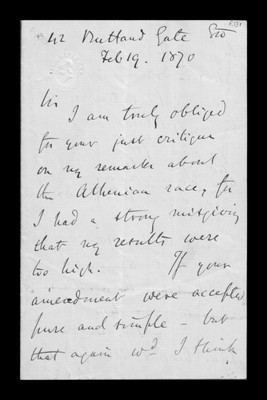 42 Rutland Gate SW
Feb 19. 1870
Sir
I am truly obliged
for your just critique
on my remarks about
the Athenian race, for
I had a strong misgiving
that my results were
too high. If your
amendment were accepted
pure and simple – but
that again wd I think